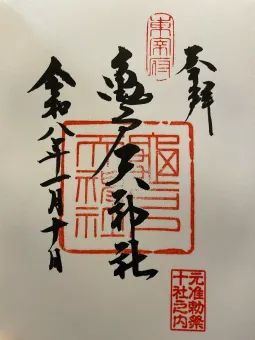 奉拝
東宰府
亀戸天神社
令和八年一月十日
元准勅祭
十社之内